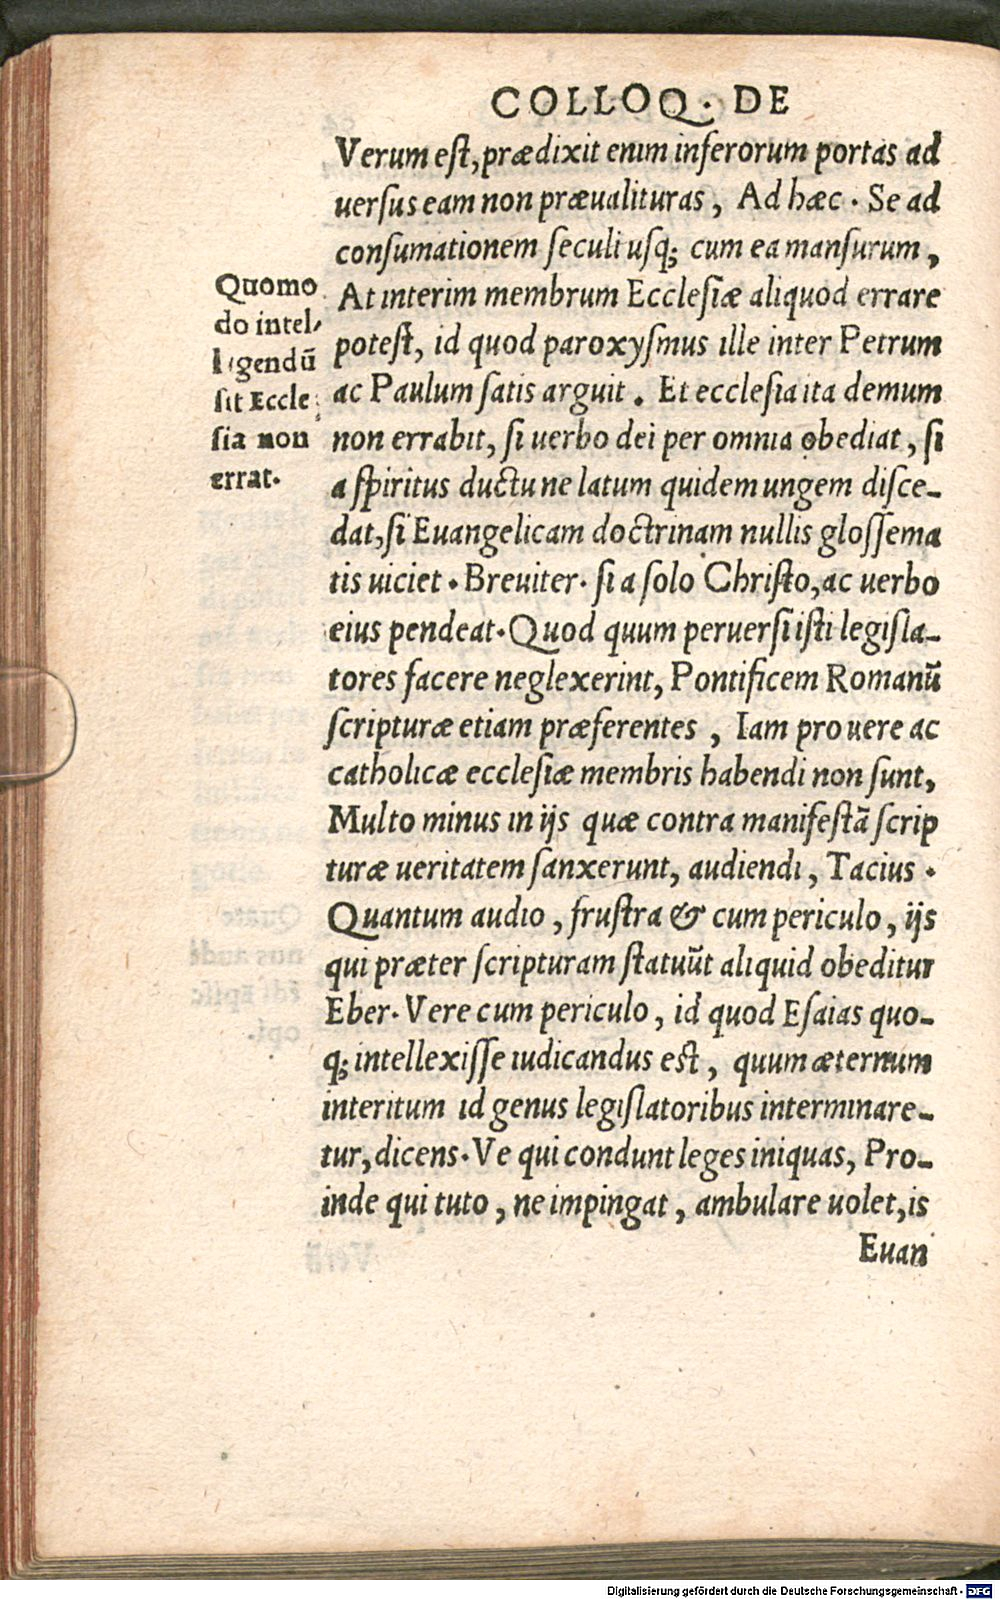 COLLOQ. DE
Verum est, prædixit enim inferorum portas ad
uersus eam non præualituras, Ad hæc. Se ad
consumationem seculi usq; cum ea mansurum,
At interim membrum Ecclesiæ aliquod errare
potest, id quod paroxysmus ille inter Petrum
ac Paulum satis arguit. Et ecclesia ita demum
non errabit, si uerbo dei per omnia obediat, si
a spiritus ductu ne latum quidem ungem disce-
dat, si Euangelicam doctrinam nullis glossema
tis uiciet. Breuiter. si a solo Christo, ac uerbo
eius pendeat. Quod quum peruersi isti legisla-
tores facere neglexerint, Pontificem Romanū
scripturæ etiam præferentes, Iam pro uere ac
catholicæ ecclesiæ membris habendi non sunt,
Multo minus in ijs quæ contra manifestā scrip
turæ ueritatem sanxerunt, audiendi, Tacius.
Quantum audio, frustra & cum periculo, ijs
qui præter scripturam statuūt aliquid obeditur
Eber. Vere cum periculo, id quod Esaias quo-
q; intellexisse iudicandus est, quum æternum
interitum id genus legislatoribus interminare-
tur, dicens. Ve qui condunt leges iniquas, Pro-
inde qui tuto, ne impingat, ambulare uolet, is
Euan
Quomo
do intel-
ligendū
sit Eccle
sia non
errat.
Digitalisierung gefördert durch die Deutsche Forschungsgemeinschaft - DFG